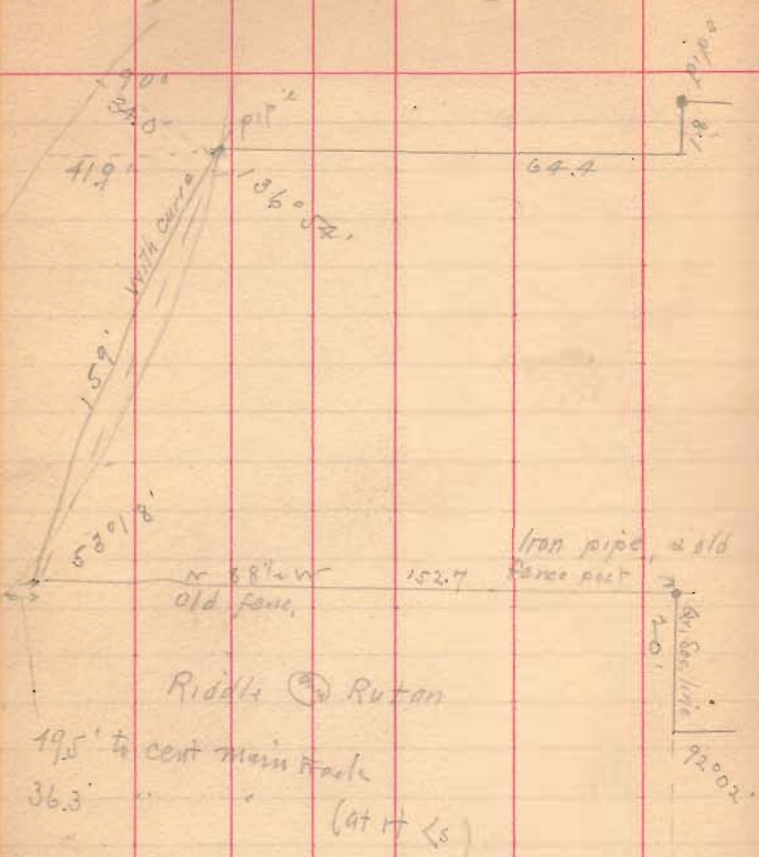 pipe
90°
34.0
pipe
8.1
41.9'
64.4
136°54'
With curve
159'
53°18'
Iron pipe, & old
fence post
N 88½ W
152.7
Old fence,
20'
Qr. Sec. line
Riddle @ Rutan
92°02'
49.5' to cent main track
36.3' " " "
(at rt <s)